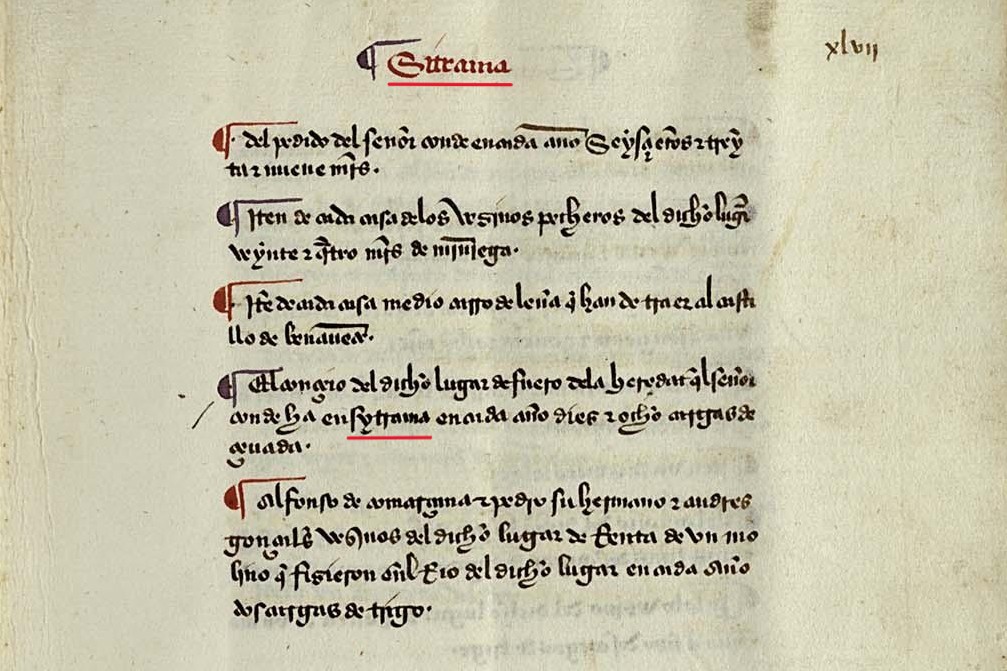 xlvij
¶ Sitrama
¶ del pedido del señor conde en cada año Seysçientos e treyn
ta e nueve mrs.
¶ Iten de cada casa de los vesinos pecheros del dicho lugar
veynte e quatro mrs de
¶ Iten de cada casa medio carro de leña que han de traer al casti
llo de benavente.
¶ El conçejo del dicho lugar de fuero de la heredat quel señor
conde ha en sytrama en cada año dies e ocho cargas de
çevada.
¶ Alfonso de e pedro su hermano e andres
gonçales vesinos del dicho lugar de Renta de un mo
lino que fisieron en el Rio del dicho lugar en cada Año
dos cargas de trigo.